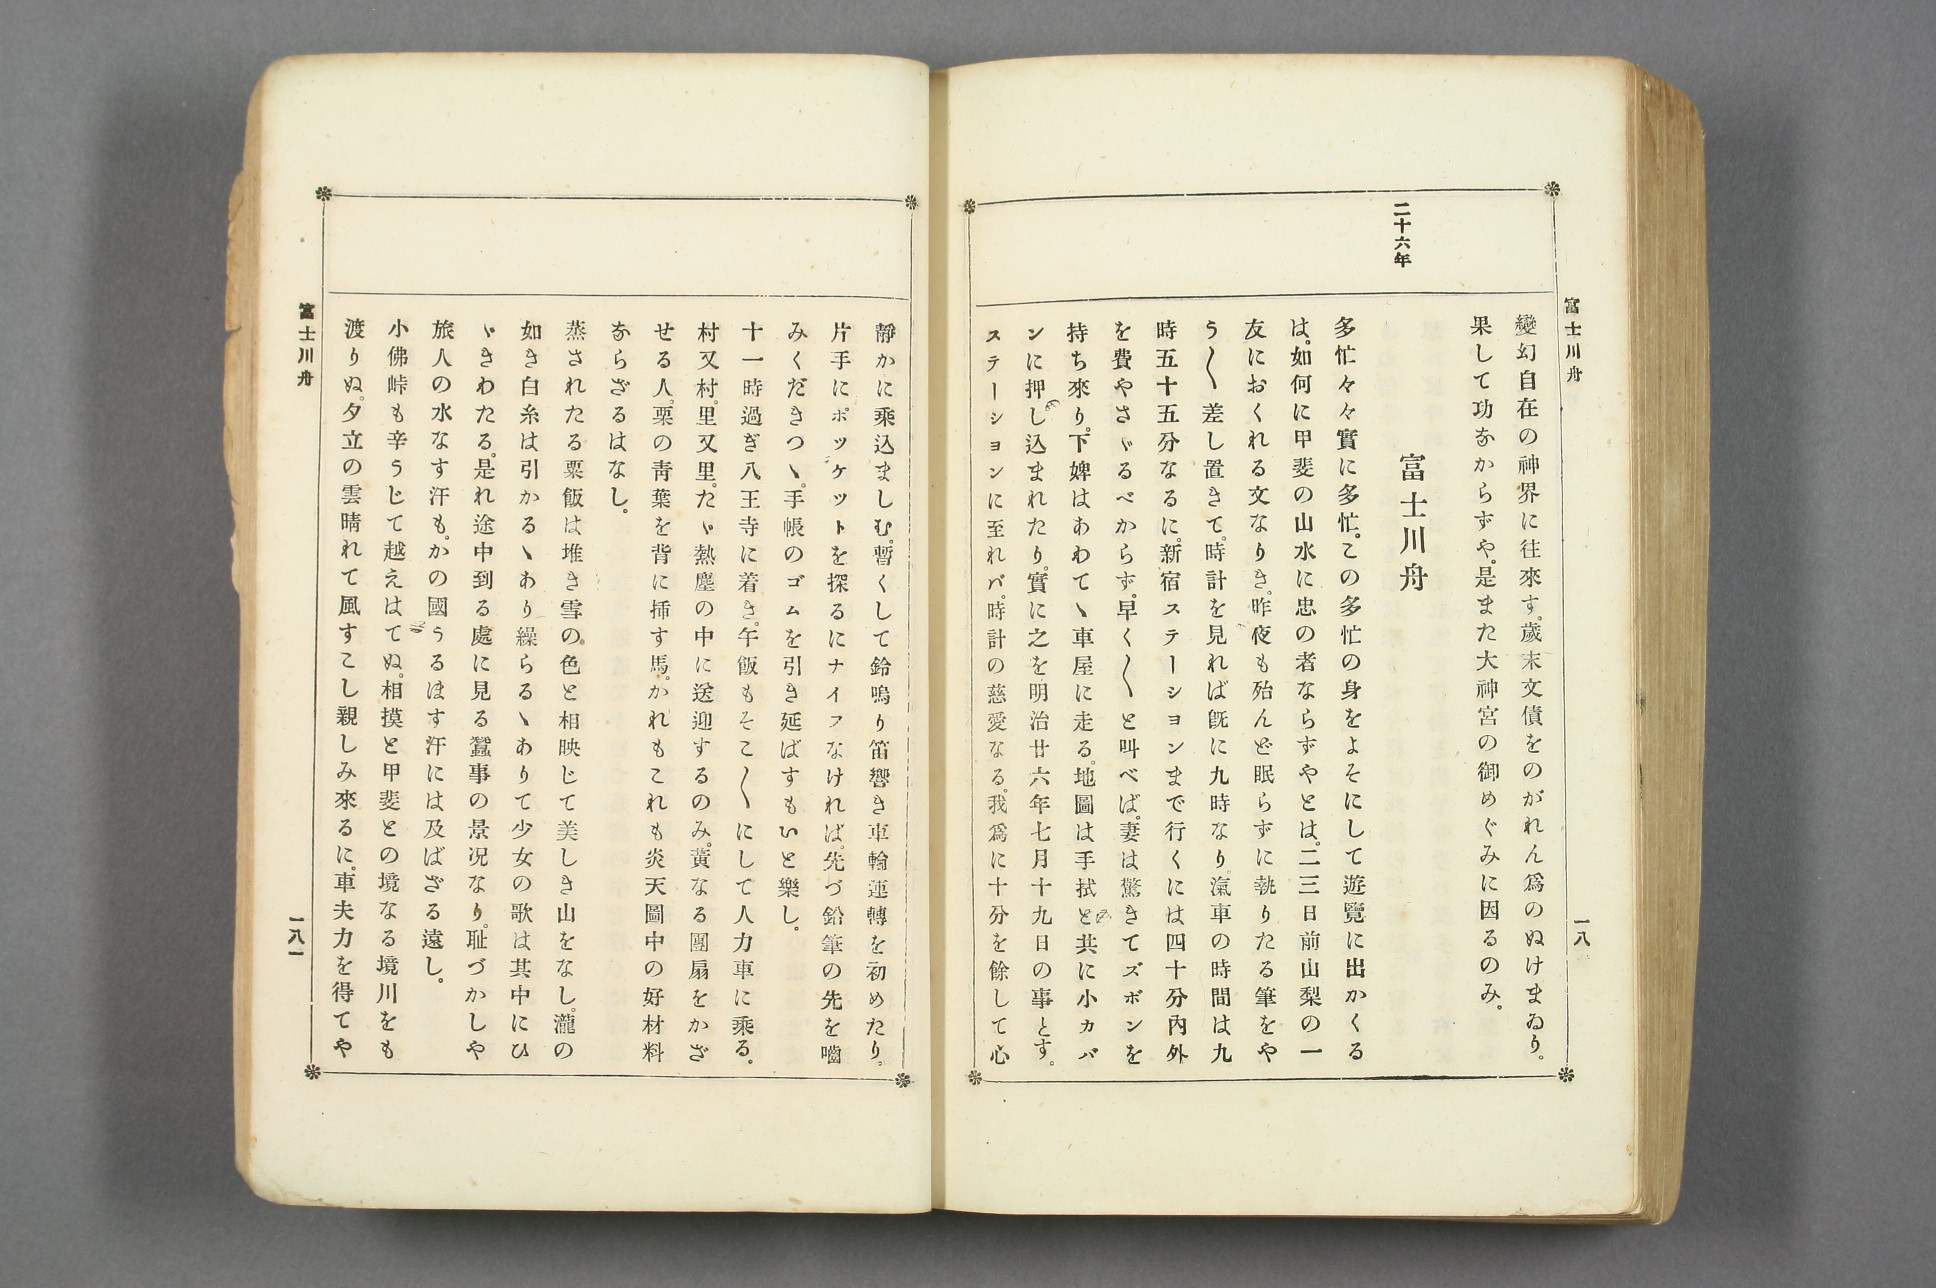 富士川舟
一八
變幻自在の神界に往來す。歲末文債をのがれん爲のぬけまゐり。
果して功なからずや。是また大神宮の御めぐみに因るのみ。
二十六年
富士川舟
多忙々々實に多忙。この多忙の身をよそにして遊覽に出かくる
は。如何に甲斐の山水に忠の者ならずやとは。二三日前山梨の一
友におくれる文なりき。昨夜も殆んど眠らずに執りたる筆をや
う〳〵差し置きて。時計を見れば旣に九時なり。滊車の時間は九
時五十五分なるに。新宿ステーションまで行くには四十分內外
を費やさゞるべからず。早く〳〵と叫べば。妻は驚きてズボンを
持ち來り。下婢はあわてゝ車屋に走る。地圖は手拭と共に小カバ
ンに押し込まれたり。實に之を明治廿六年七月十九日の事とす。
ステーションに至れバ。時計の慈愛なる。我爲に十分を餘して心
靜かに乘込ましむ。暫くして鈴鳴り笛響き車輪運轉を初めたり。
片手にポッケットを探るにナイフなければ。先づ鉛筆の先を嚙
みくだきつゝ。手帳のゴムを引き延ばすもいと樂し。
十一時過ぎ八王寺に着き。午飯もそこ〳〵にして人力車に乘る。
村又村。里又里。たゞ熱塵の中に送迎するのみ。黃なる團扇をかざ
せる人。栗の靑葉を背に揷す馬。かれもこれも炎天圖中の好材料
ならざるはなし。
蒸されたる粟飯は堆き雪の。色と相映じて美しき山をなし。瀧の
如き白糸は引かるゝあり繰らるゝありて少女の歌は其中にひ
ゞきわたる。是れ途中到る處に見る蠶事の景况なり。耻づかしや
旅人の水なす汗も。かの國うるほす汗には及ばざる遠し。
小佛峠も辛うじて越えはてぬ。相摸と甲斐との境なる境川をも
渡りぬ。夕立の雲晴れて風すこし親しみ來るに。車夫力を得てや
富士川舟
一八一